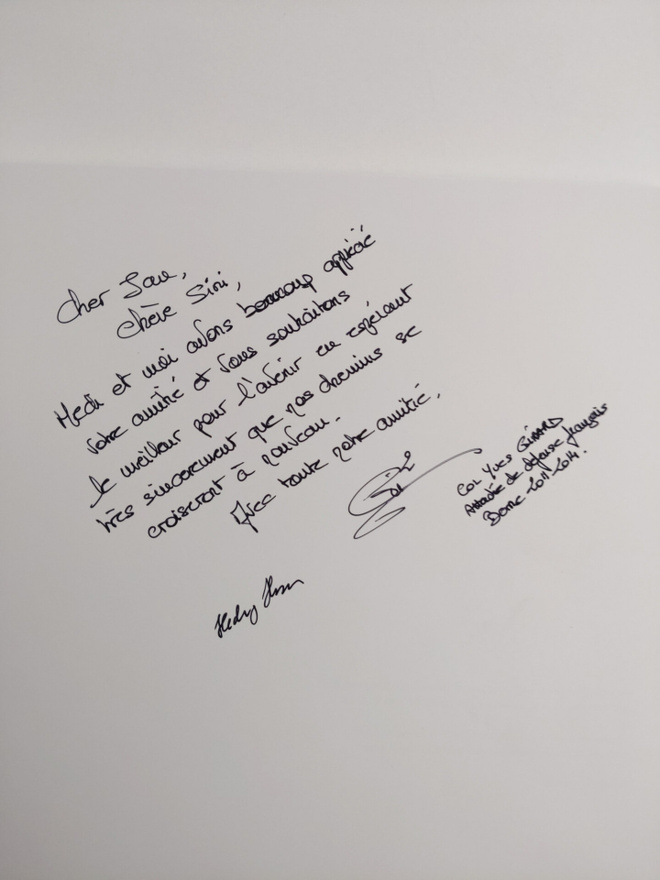 Cher
Chère Sini,
et moi avons beaucoup apprécié
votre amitié et vous souhaitons
le meilleur pour l'avenir en espérant
très sincèrement que nos chemins se
croiseront à nouveau.
Avec toute notre amitié.
Col Yves GIRARD
Attaché de défense français
Berne 2011-2014.